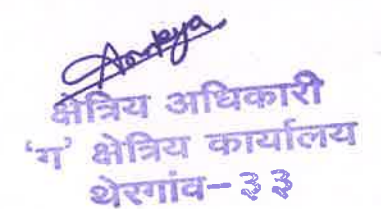 क्षेत्रिय अधिकारी
'ग' क्षेत्रिय कार्यालय
थेरगांव-३३